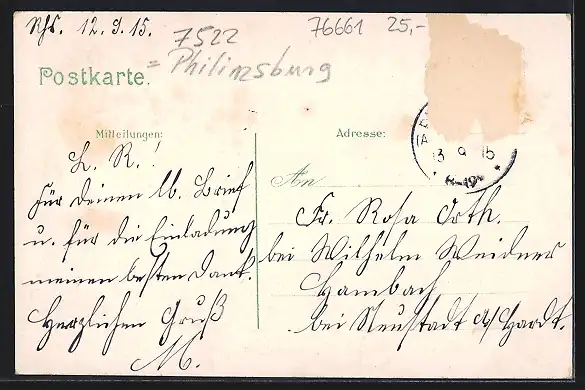 Rhs. 12.9.15.
7522
= Philippsburg
76661 25,-
Postkarte.
Mitteilungen:
L. R.!
Für deinen lb. Brief
u. für die Einladung
meinen besten Dank.
Herzlichen Gruß
M.
Adresse:
13 9 15
An
Fr. Rosa Orth.
bei Wilhelm Weidner
Hambach
bei Neustadt a/Hardt.